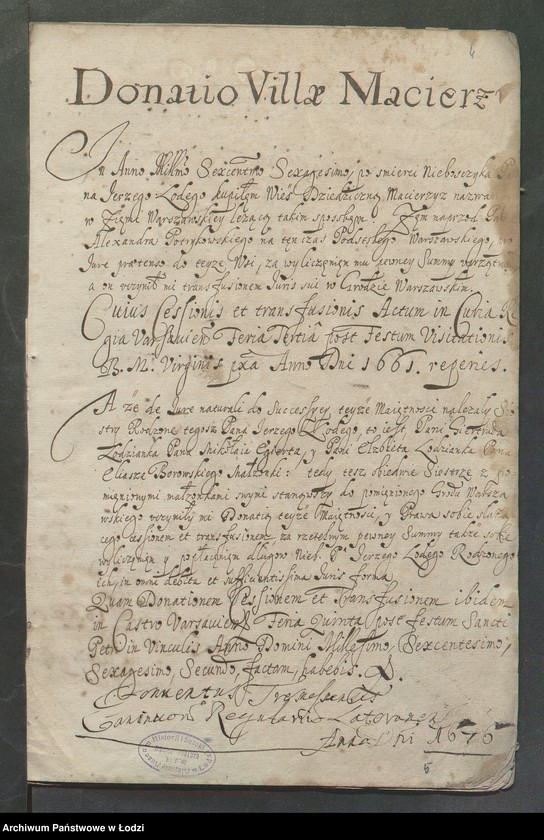 4
Donatio Villæ Macierz
In Anno Mill.mo Sexcentmo Sexagesimo, po smierci Nieboszczyka
na Jerzego Lodego kupiłęm Wieś Dziedziczną Macierzysz nazwa
w Ziemi Warszawskiey leżącą takim sposobem. Zem naprzod
Alexandra Potrykowskiego na tęnczas Podsętka Warszawskiego,
Jure prætenso do teyże Wsi, za wyliczęnięm mu pewney Summy
a on uczynił mi transfusionem Juris sui w Grodzie Warszawskim.
Cuius Cessionis et transfusionis Actum in Curia Re
gia Varsavien Feria Tertia post Festum Visitationis
B. M. Virginis pxa Anno Dni 1661. reperies.
A że de Jure naturali do Successyey teyże Maiętnosci należały
stry Rodzone tegosz Pana Jerzego Lodego, to iest Pani Giertruda
Łodzianka Pana Mikołaia Eberta, y Pani Elzbieta Lodzianka Pana
Eliasza Borowskiego Małzonki: tedy tesz obiedwie Siestrze z po
mięnionymi małzonkami swymi stanąwszy do pomięnionego Grodu Warsza
wskiego uczyniły mi Donatią teyże Maiętnosci, y Prawa sobie służą
cego Cessionem et transfusionem, za rzetelnym pewney Summy także sobie
wyliczęnięm y popłacęnięm długow Nieb. Pa Jerzego Lodego Rodzonego
ich, in omni debita et sufficientissima Juris forma
Quam Donationem Cessionem et Transfusionem ibidem
in Castro Varsavien Feria Quinta post Festum Sancti
Petri in Vinculis Anno Domini Millesimo, Sexcentesimo,
Sexagesimo, Secundo, factam, habebis.
Conventus Tremessensis
Canonicorum Regularium Lateranen
Anno Dni 1676
5
Archiwum Państwowe w Łodzi